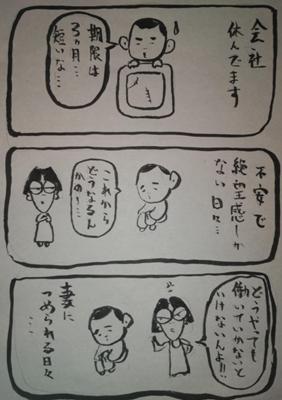 会社
休んでます
期限は
3ヵ月…
短いな…
不安で
絶望感しか
ない日々…
これから
どうなるん
かの〜…
どうやっても
働いていかないと
いけないんよ!!
妻に
つめられる日々
……